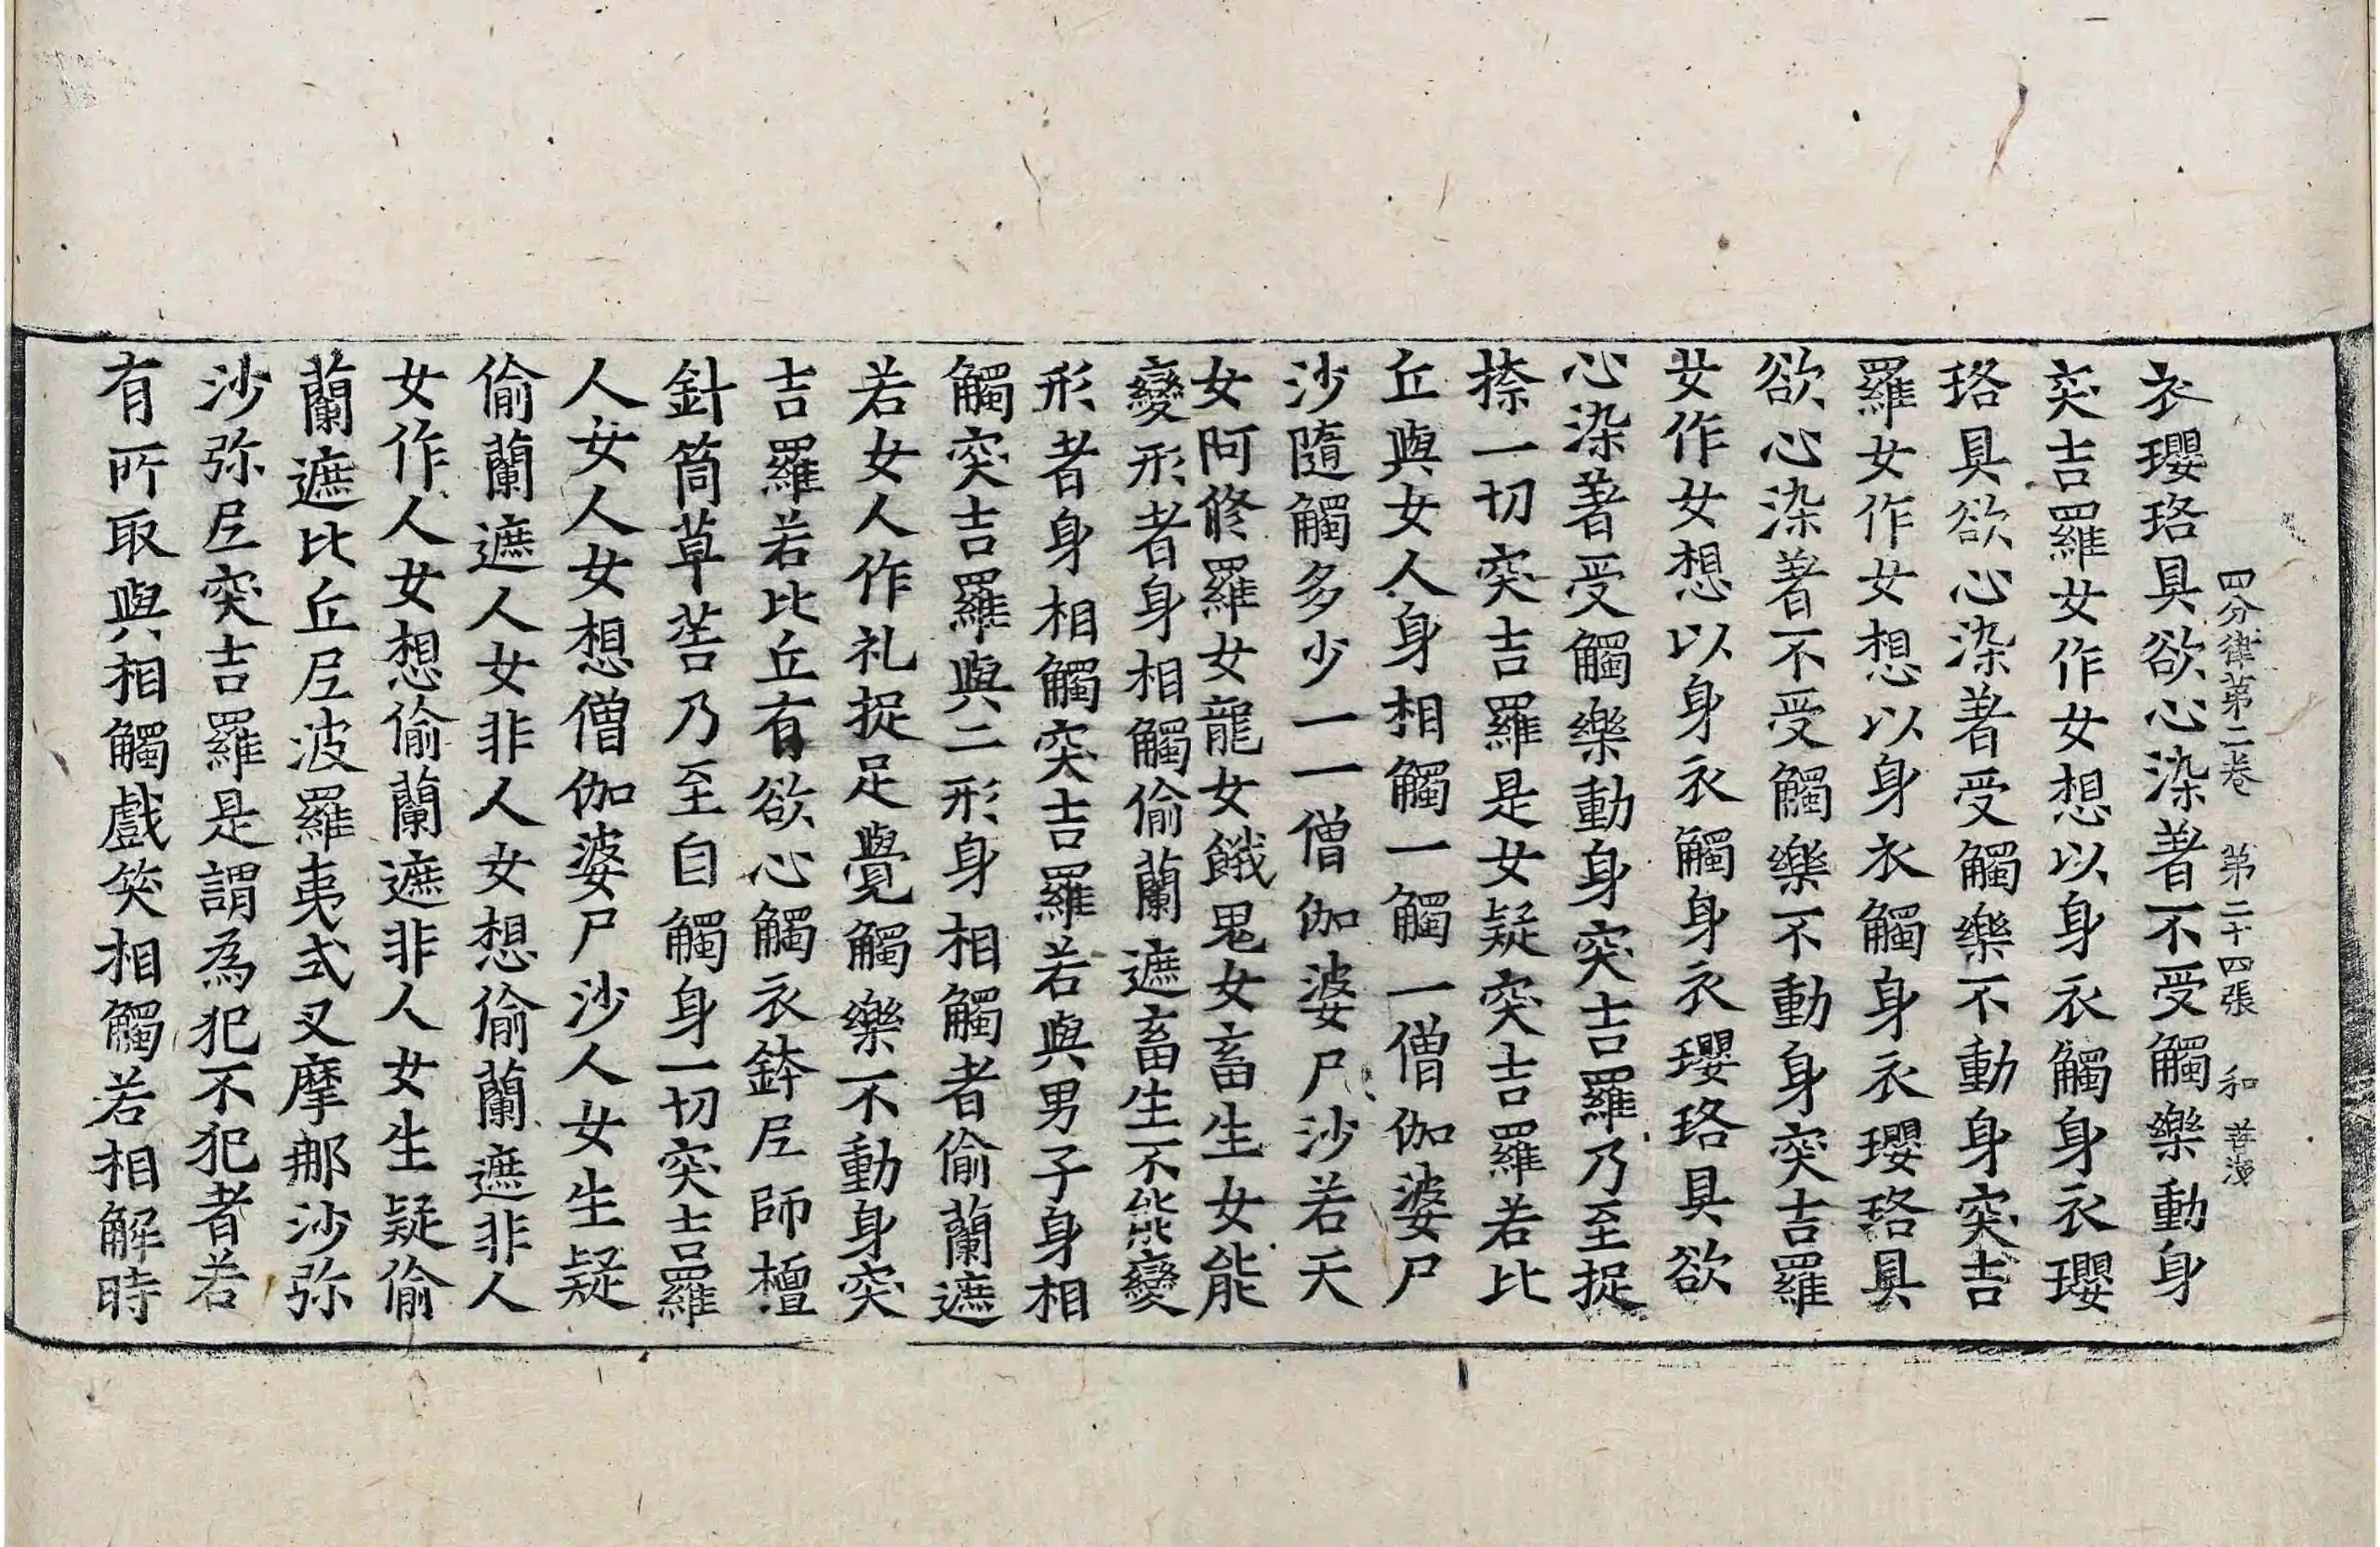 四分律第二卷 第二十四張 和
衣瓔珞具欲心染著不受觸樂動身
突吉羅女作女想以身衣觸身衣瓔
珞具欲心染著受觸樂不動身突吉
羅女作女想以身衣觸身衣瓔珞具
欲心染著不受觸樂不動身突吉羅
女作女想以身衣觸身衣瓔珞具欲
心染著受觸樂動身突吉羅乃至捉
捺一切突吉羅是女疑突吉羅若比
丘與女人身相觸一觸一僧伽婆尸
沙隨觸多少一一僧伽婆尸沙若天
女阿修羅女龍女餓鬼女畜生女能
變形者身相觸偷蘭遮畜生不能變
形者身相觸突吉羅若與男子身相
觸突吉羅與二形身相觸者偷蘭遮
若女人作礼捉足覺觸樂不動身突
吉羅若比丘有欲心觸衣鉢𡰱師檀
針筒草𦯧乃至自觸身一切突吉羅
人女人女想僧伽婆尸沙人女生疑
偷蘭遮人女非人女想偷蘭遮非人
女作人女想偷蘭遮非人女生疑偷
蘭遮比丘𡰱波羅夷式叉摩那沙弥
沙弥𡰱突吉羅是謂為犯不犯者若
有所取與相觸戲笑相觸若相解時